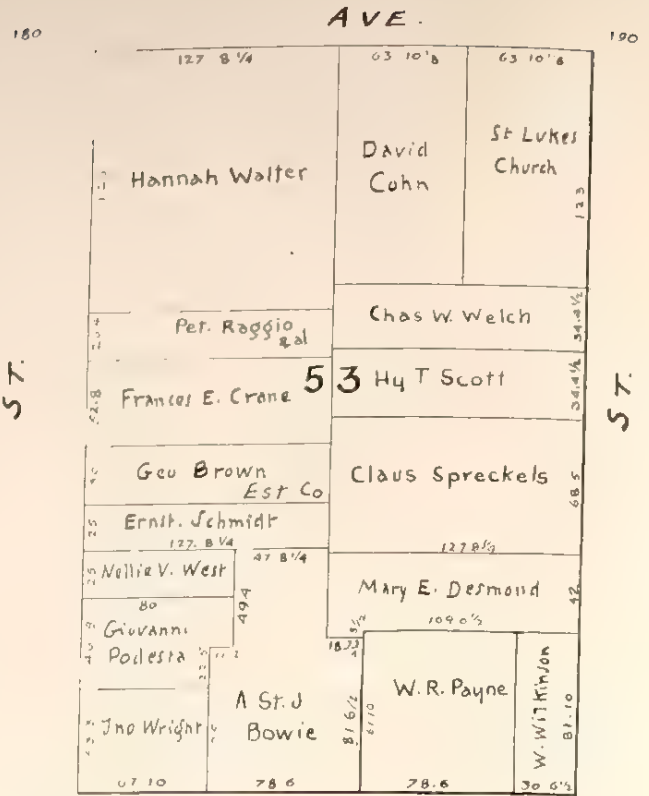 AVE.
180
190
127 8 1/4
63 10 1/8
63 10 1/8
Hannah Walter
David
Cohn
St Lukes
Church
123
Pet. Raggio
& al
Chas W. Welch
34.4 1/2
ST.
Frances E. Crane
53
Hy T Scott
34.4 1/2
ST.
Geo Brown
Est Co
Claus Spreckels
68 5
25
Ernst. Schmidt
127. 8 1/4
47 8 1/4
25
Nellie V. West
Mary E. Desmond
42
109 0 1/2
80
49 4
Giovanni
Podesta
W. R. Payne
W. Wilkinson
81.10
Jno Wright
A St. J
Bowie
81 6 1/2
67 10
78 6
78.6
30 6 1/2